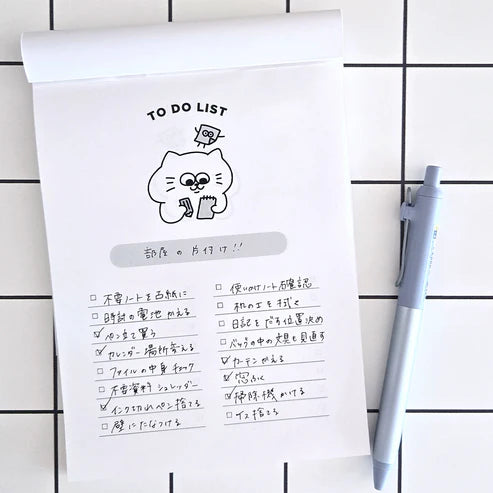 TO DO LIST
部屋の片付け!!
不要ノートを古紙に
時計の電池かえる
ペン立て買う
カレンダー場所考える
ファイルの中身チェック
不要資料シュレッダー
インク切れペン捨てる
壁にたなつける
使いかけノート確認
机の上を拭く
日記をだす位置決め
バッグの中の文具も見直す
カーテンかえる
窓ふく
掃除機かける
イス捨てる